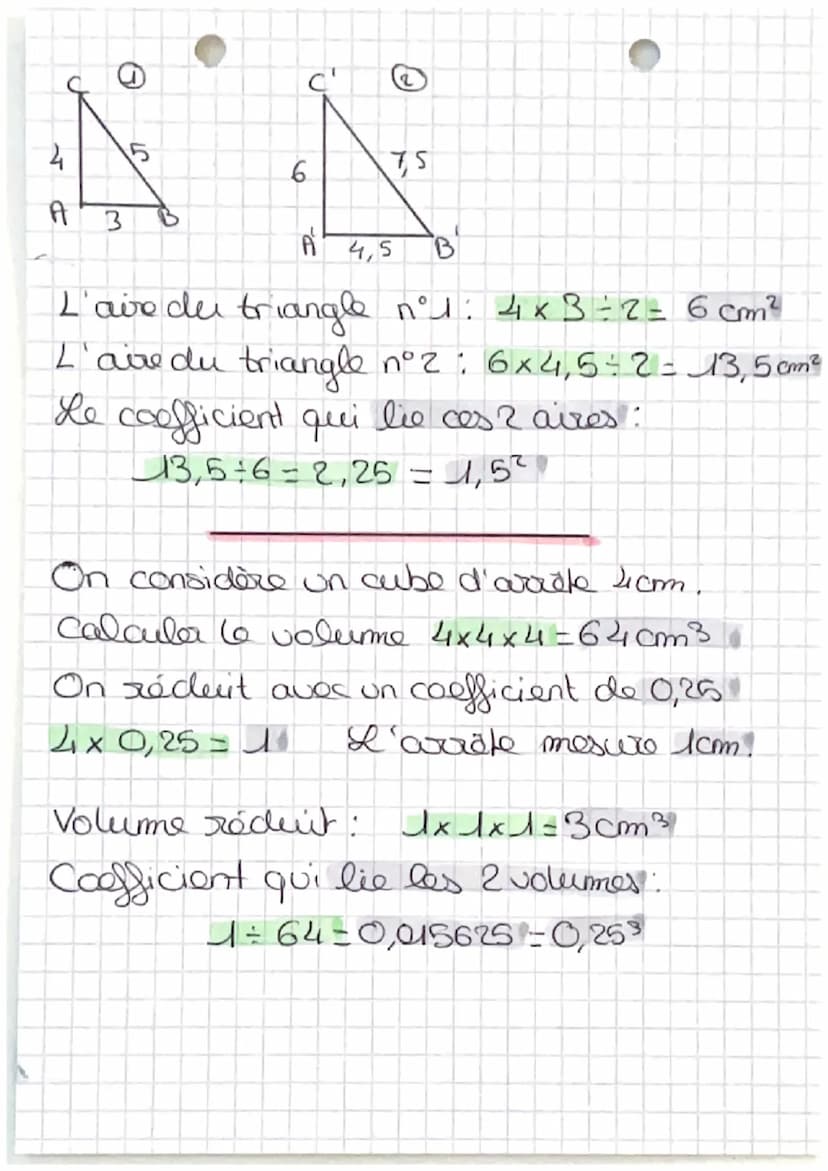 C ① C' ②
4 5 6 7,5
A 3 B A' 4,5 B'
L'aire du triangle n°1 : 4 x 3 ÷ 2 = 6 cm²
L'aire du triangle n°2 : 6 x 4,5 ÷ 2 = 13,5 cm²
Le coefficient qui lie ces 2 aires :
13,5 ÷ 6 = 2,25 = 1,5²
On considère un cube d'arrête 4cm.
Calculer le volume 4x4x4 = 64cm³
On réduit avec un coefficient de 0,25
4 x 0,25 = 1 L'arrête mesure 1cm.
Volume réduit : 1x1x1 = 3cm³
Coefficient qui lie les 2 volumes :
1 ÷ 64 = 0,015625 = 0,25³